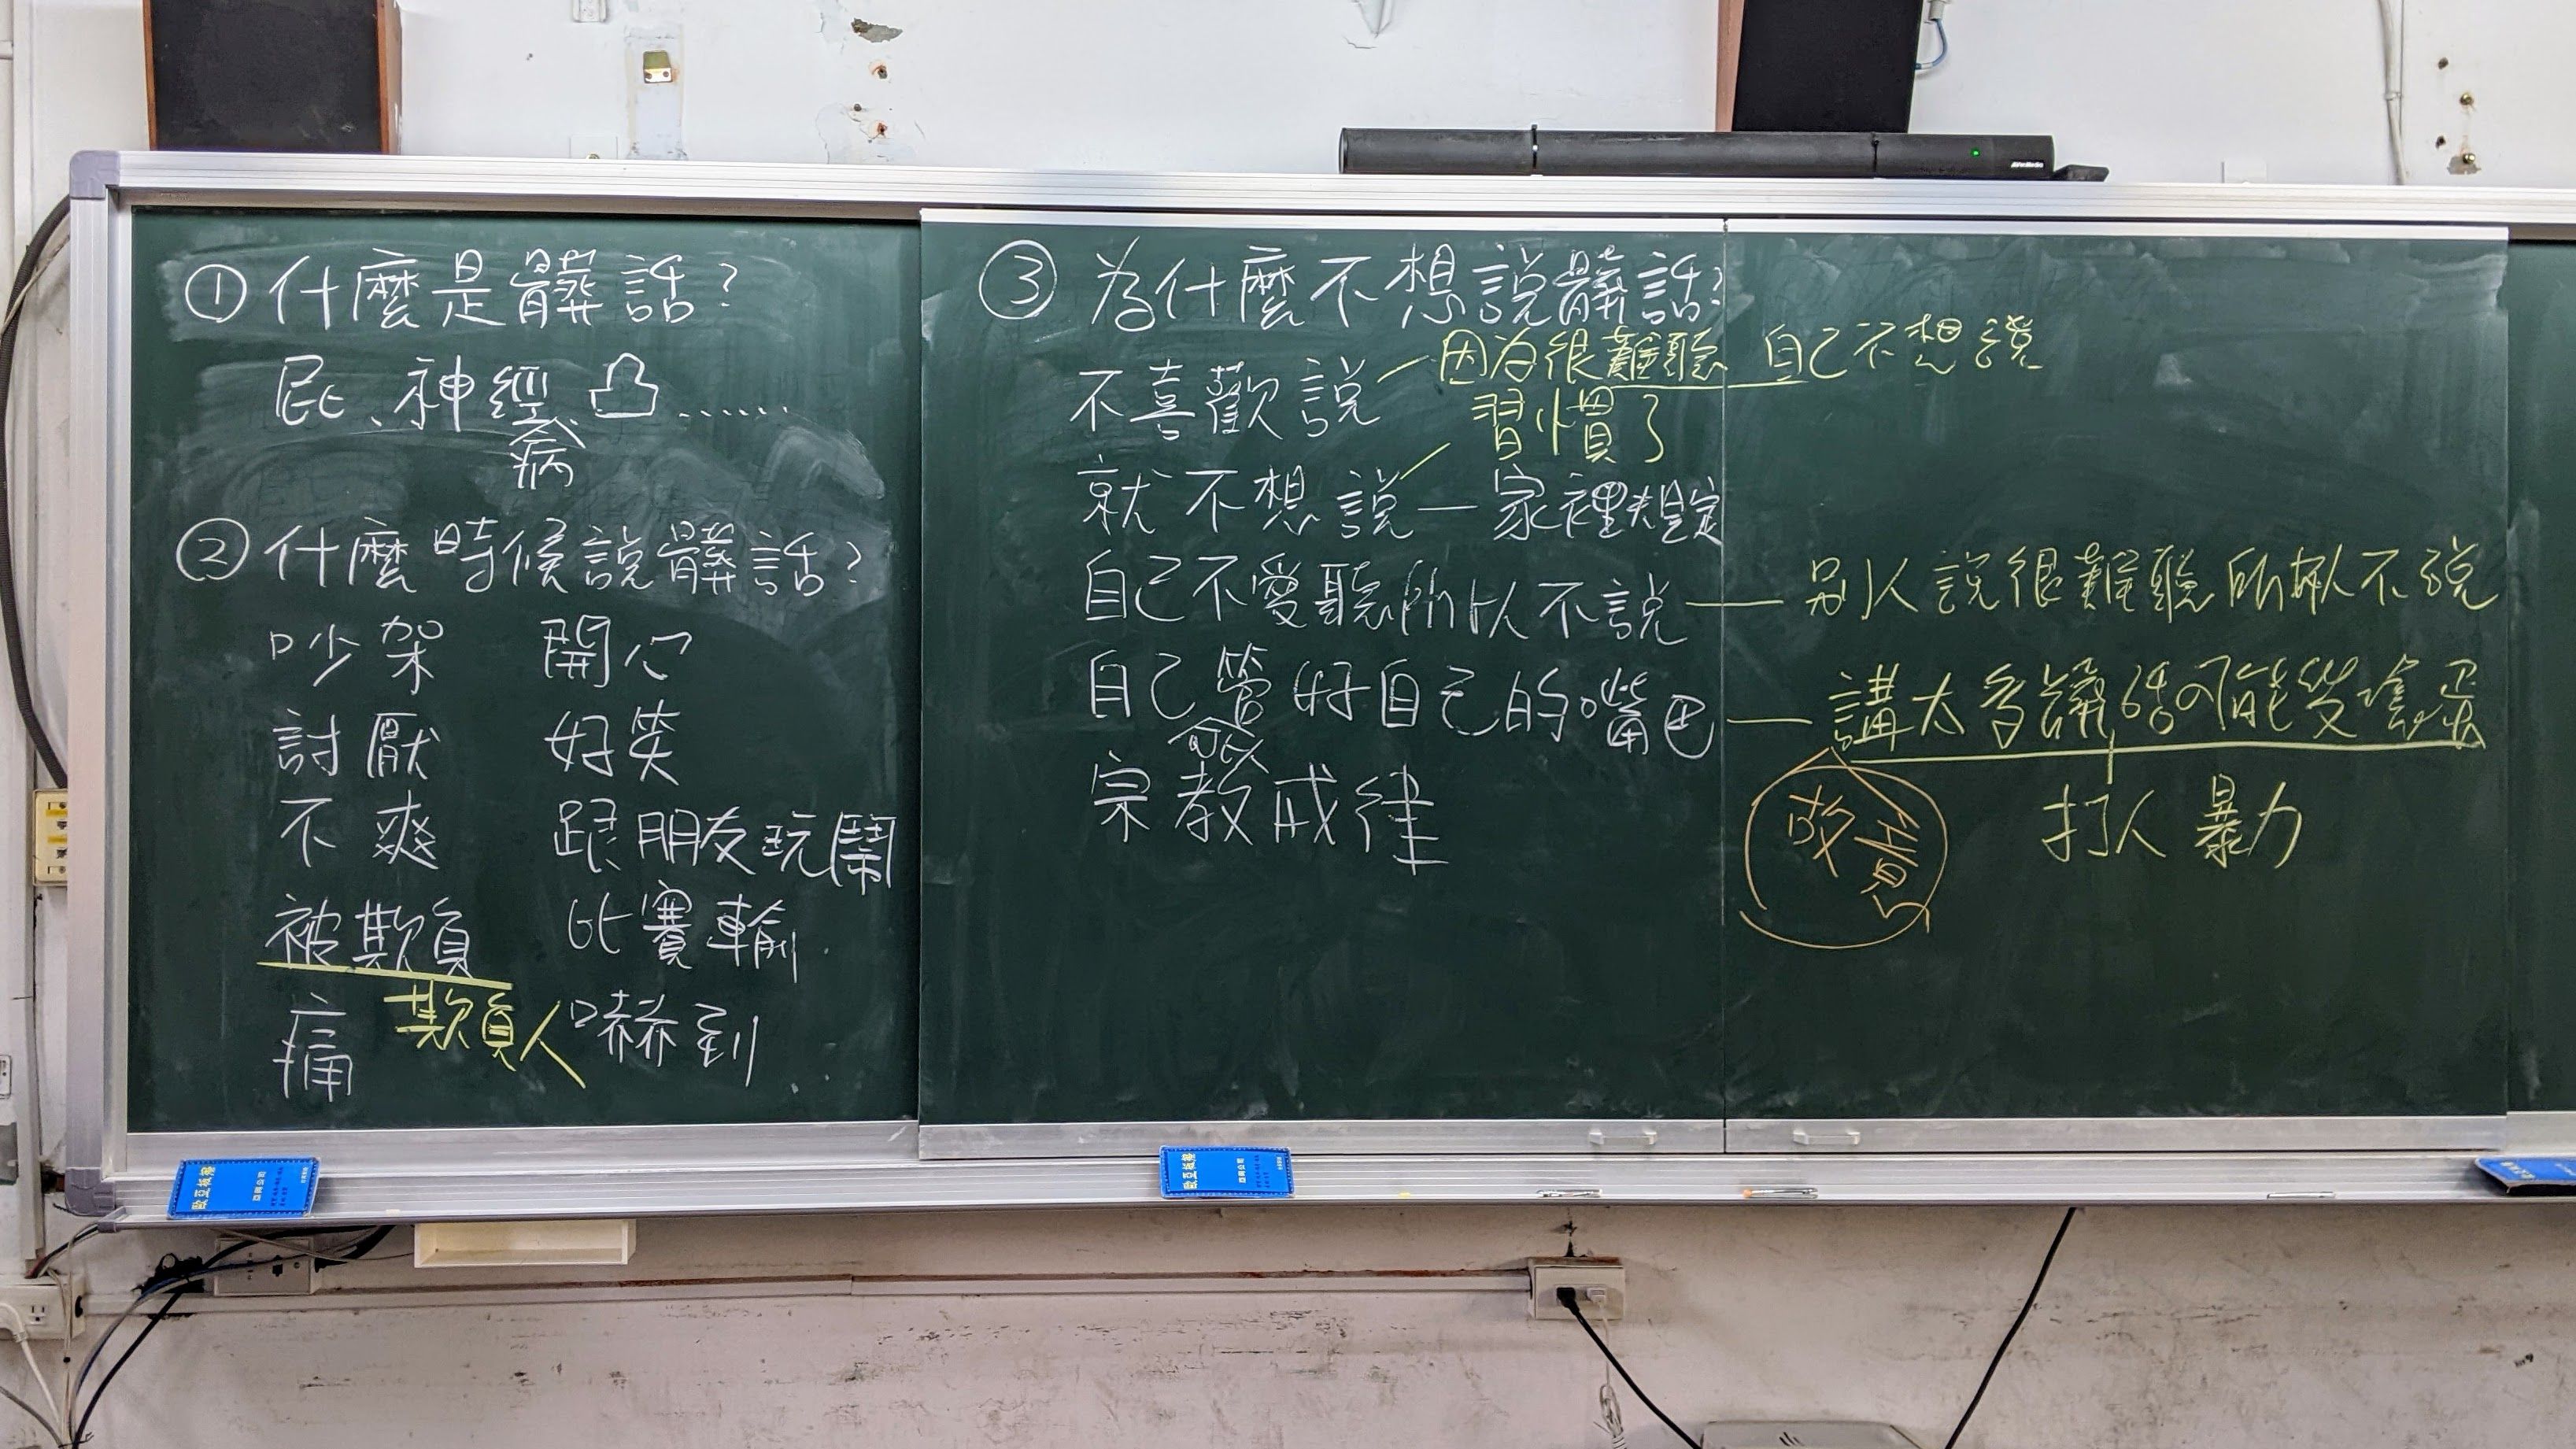 ① 什麼是髒話?
屁、神經病 凸......
② 什麼時候說髒話?
吵架 開心
討厭 好笑
不爽 跟朋友玩鬧
被欺負 比賽輸
痛 欺負人 嚇到
③ 為什麼不想說髒話?
不喜歡說 因為很難聽 自己不想說
習慣了
就不想說 — 家裡規定
自己不愛聽所以不說 — 別人說很難聽 所以 不說
自己管好自己的嘴巴 — 講太多髒話可能變
可以
宗教戒律
故意
打人 暴力
歐亞板擦